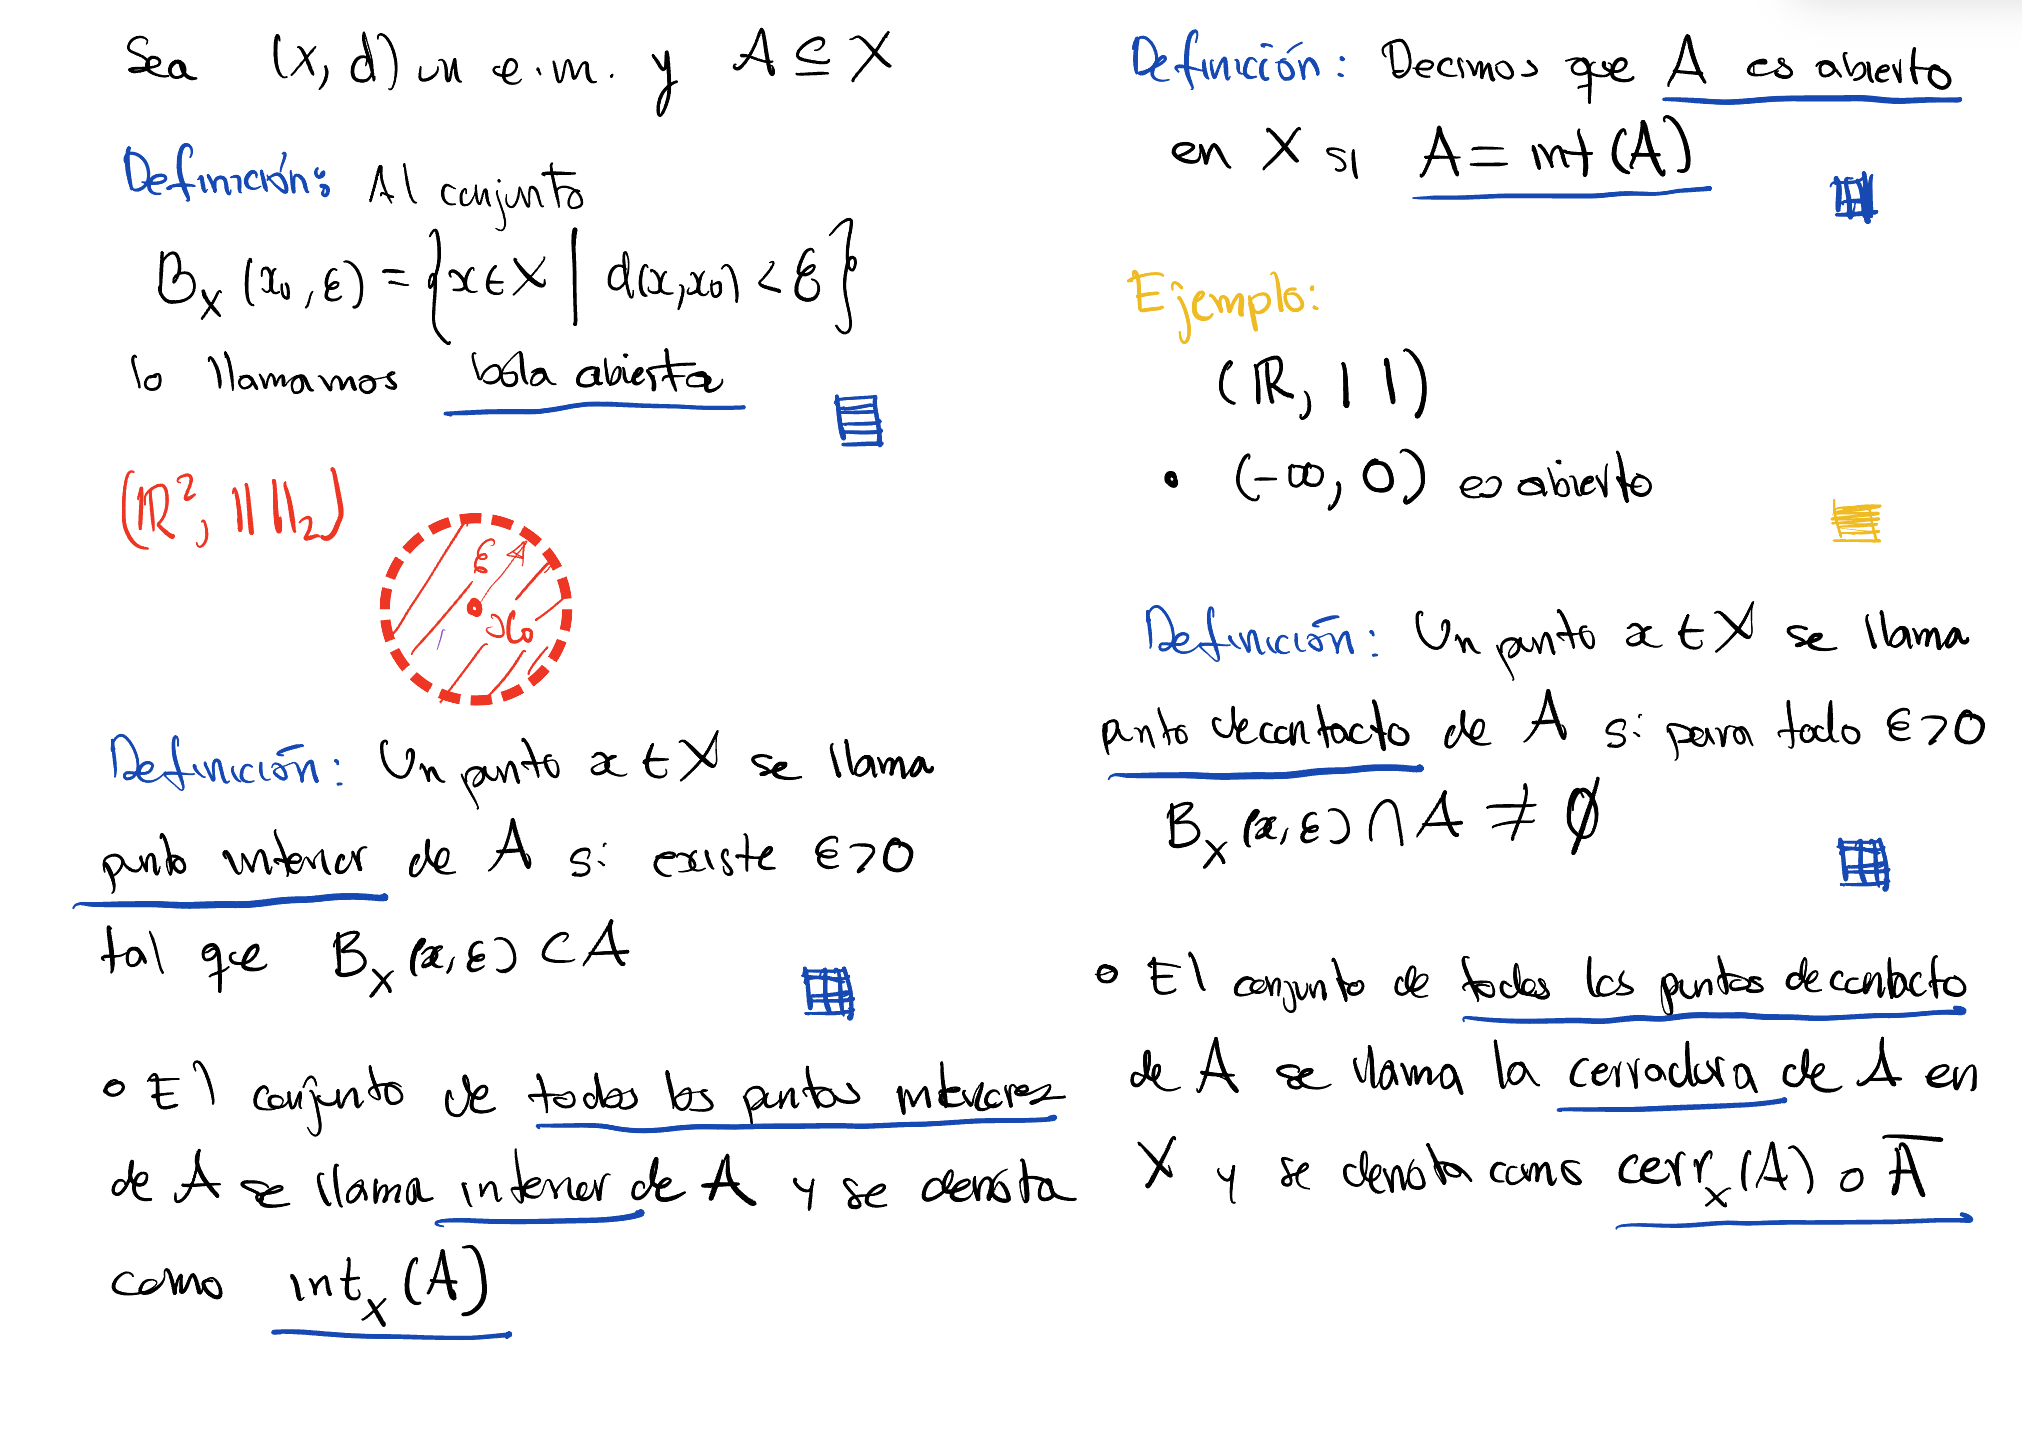 Sea (X, d) un e.m. y A ⊆ X
Definición: Al conjunto
B_X (x₀, ε) = {x ∈ X | d(x, x₀) < ε}
lo llamamos bola abierta
(ℝ², ‖ ‖₂)
ε
x₀
Definición: Un punto x ∈ X se llama
punto interior de A si existe ε > 0
tal que B_X (x, ε) ⊂ A
• El conjunto de todos los puntos interiores
de A se llama interior de A y se denota
como int_X (A)
Definición: Decimos que A es abierto
en X si A = int (A)
Ejemplo:
(ℝ, | |)
• (-∞, 0) es abierto
Definición: Un punto x ∈ X se llama
punto de contacto de A si para todo ε > 0
B_X (x, ε) ∩ A ≠ ∅
• El conjunto de todos los puntos de contacto
de A se llama la cerradura de A en
X y se denota como cerr_X (A) o A̅